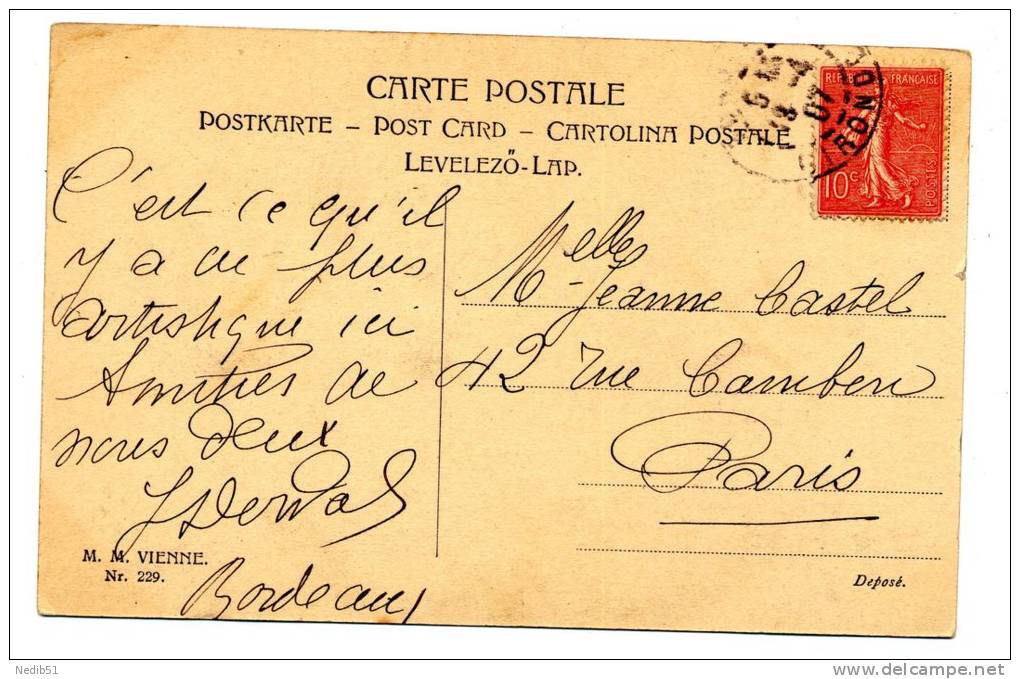 CARTE POSTALE
POSTKARTE – POST CARD – CARTOLINA POSTALE
LEVELEZŐ-LAP.
REPUBLIQUE FRANÇAISE
10c
POSTES
GIRONDE
07
C'est ce qu'il
y a de plus
artistique ici
Amitiés de
nous deux
Bordeaux
Melles Jeanne Castel
42 rue Cambon
Paris
M. M. VIENNE.
Nr. 229.
Deposé.
Nedib51
delcampe.net